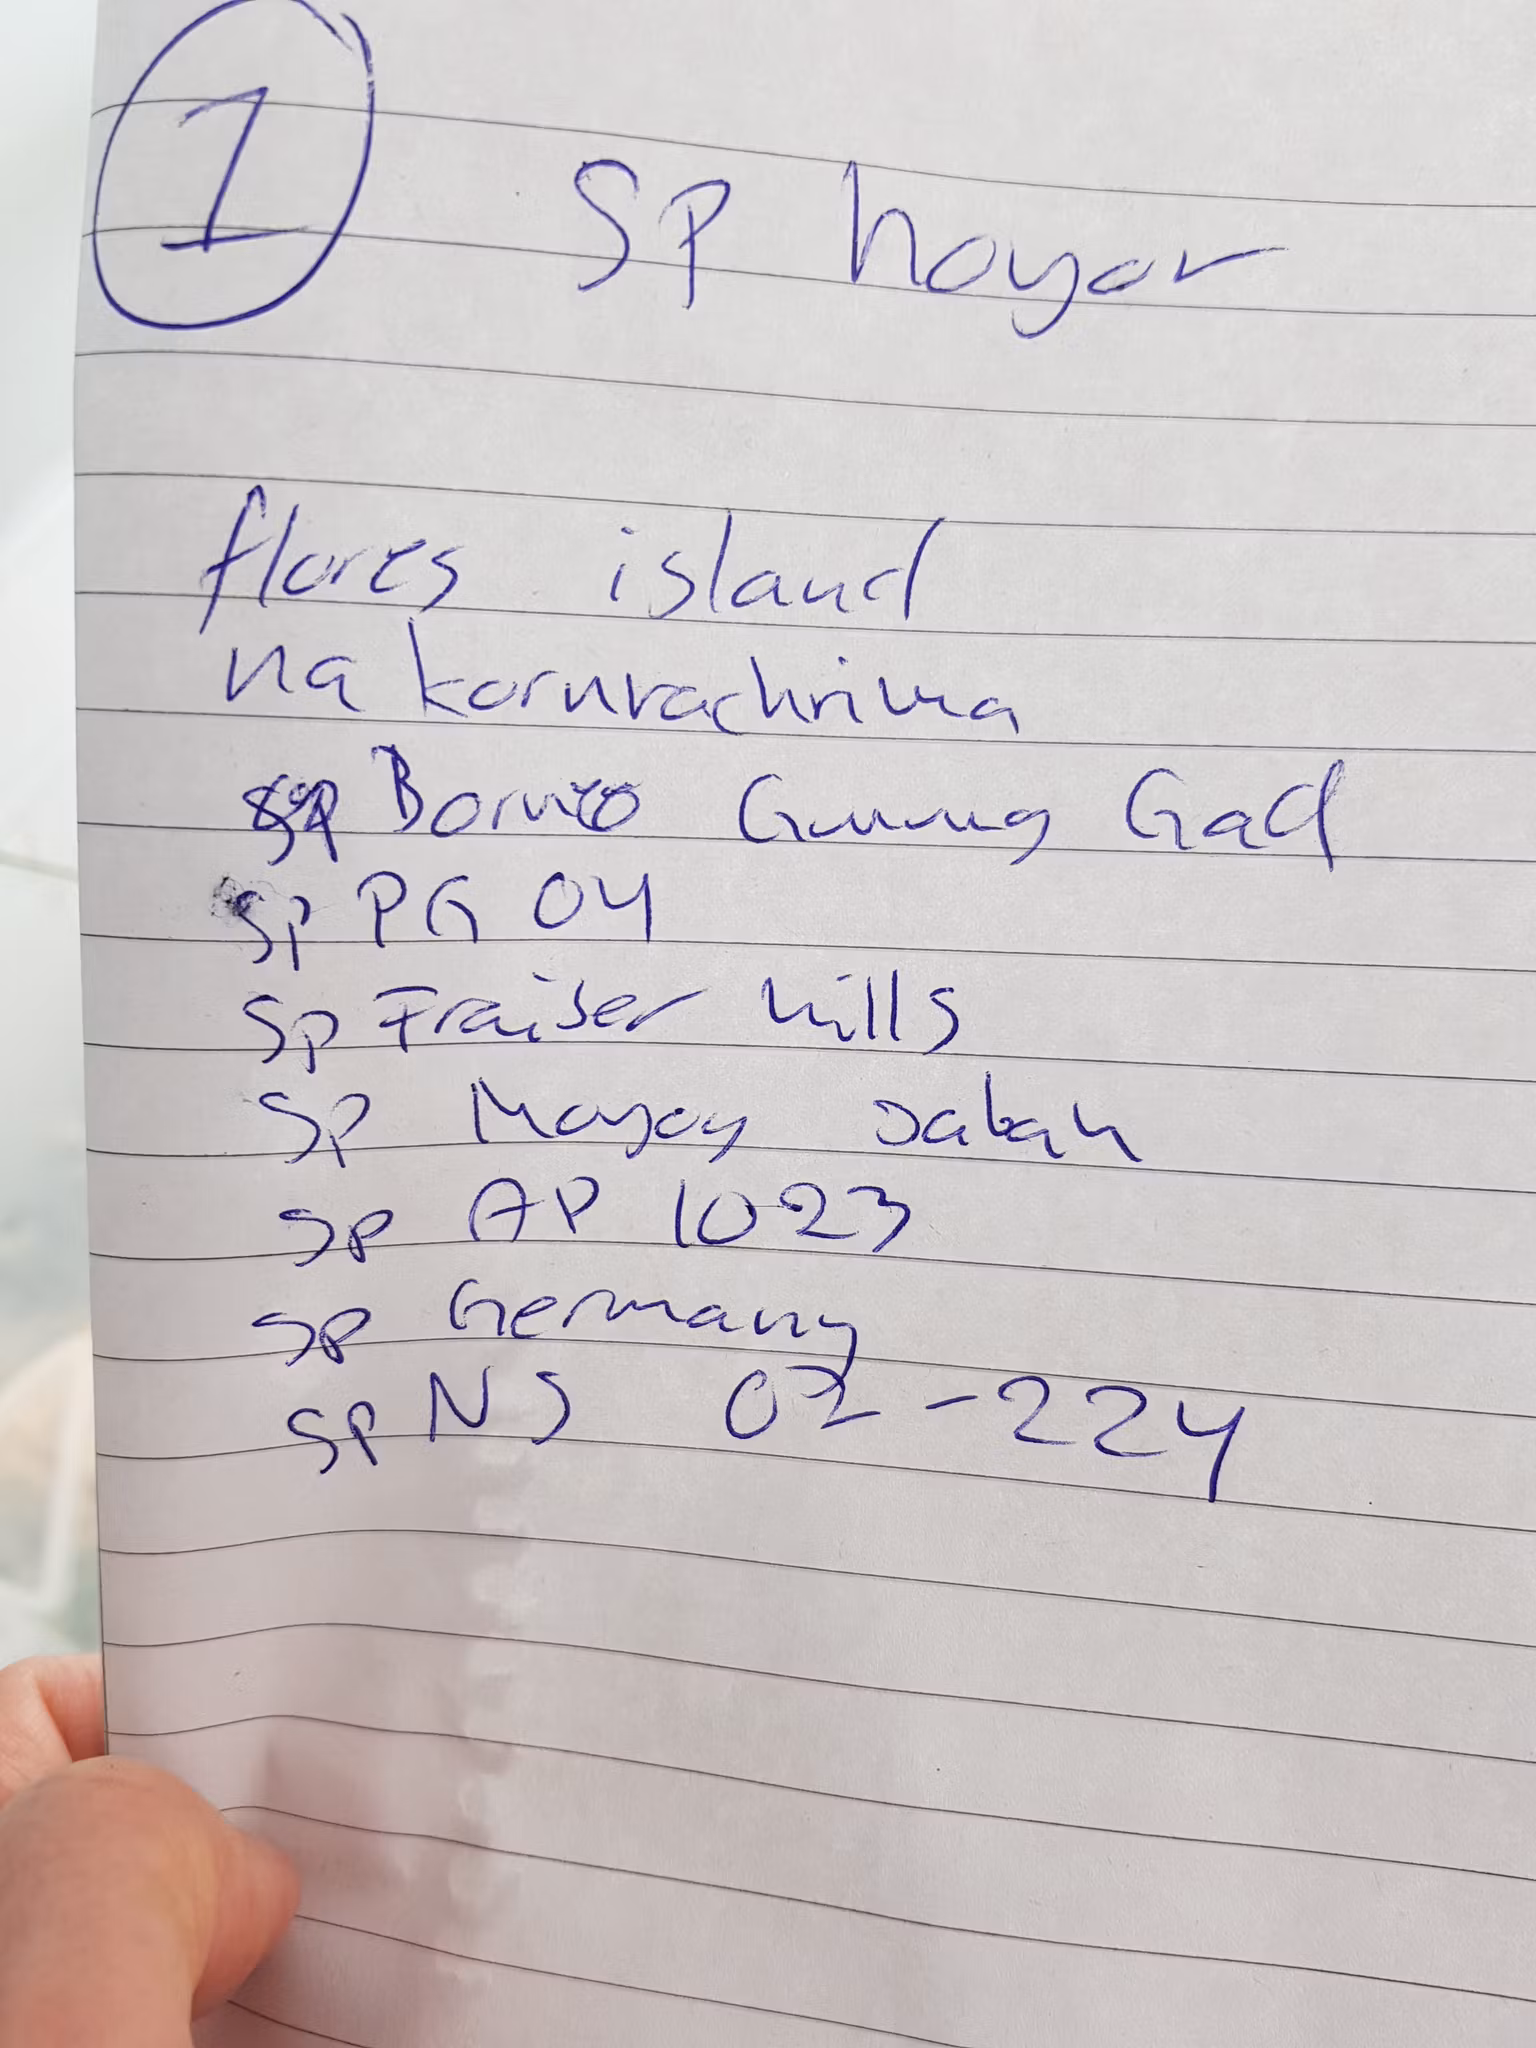 1
SP hoyor
flores island
nakornrachrima
sp Borneo Gunung Gad
sp PG 04
sp Fraiser hills
sp Mayoy sabah
sp AP 1023
sp Germany
sp NS 02-224